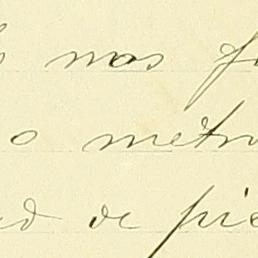 mas f
o metr
d de pie